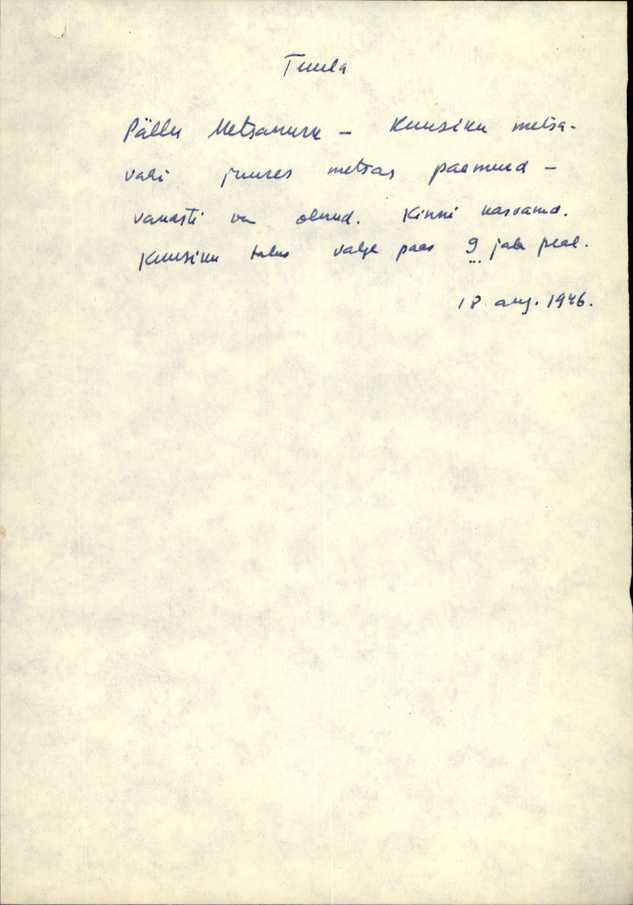 Tuula
Pällu Metsanurk – Kuusiku metsa-
vahi juures metsas paemurd –
vanasti on olnud. Kinni kasvanud.
Kuusiku talus valge paas 9 jala peal.
18 aug. 1946.